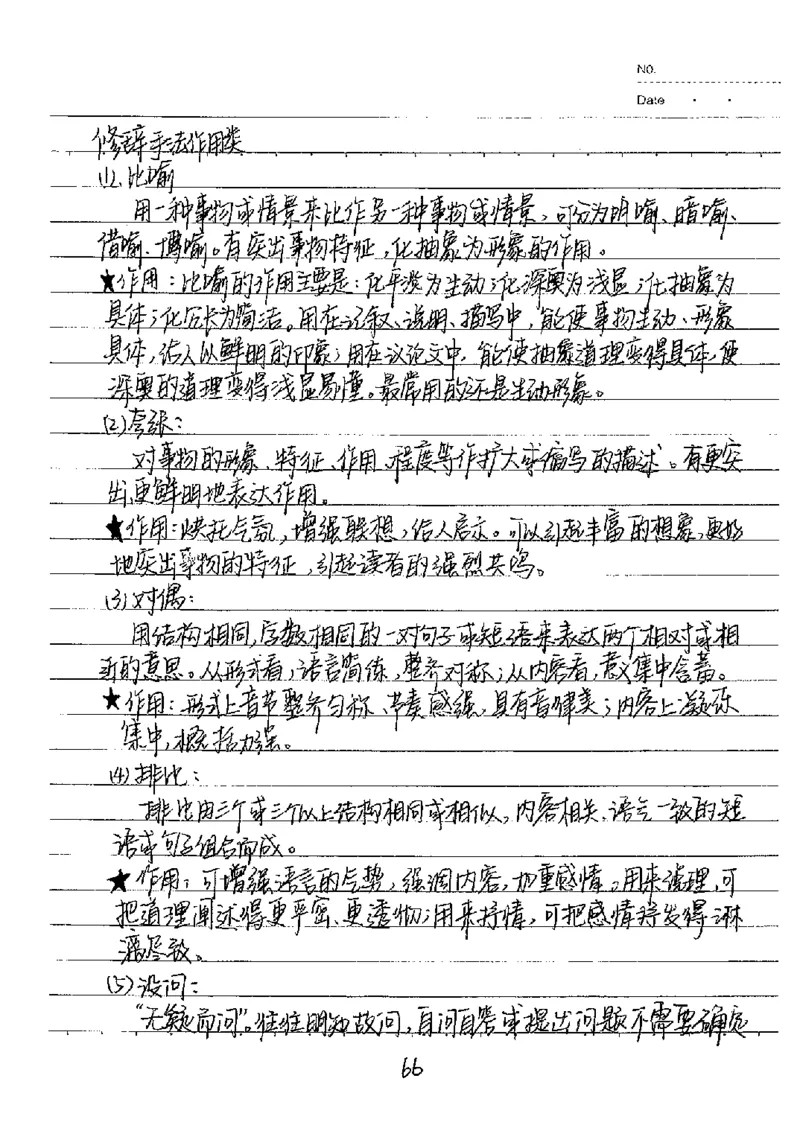 NO.
Date · ·
修辞手法作用类
(1)、比喻
用一种事物或情景来比作另一种事物或情景,可分为明喻、暗喻、
借喻、博喻。有突出事物特征,化抽象为形象的作用。
★作用:比喻的作用主要是:化平淡为生动;化深奥为浅显;化抽象为
具体;化冗长为简洁。用在记叙、说明、描写中,能使事物生动、形象
具体,给人以鲜明的印象;用在议论文中,能使抽象道理变得具体,使
深奥的道理变得浅显易懂。最常用的还是生动形象。
(2)夸张:
对事物的形象、特征、作用、程度等作扩大或缩写的描述。有更突
出,更鲜明地表达作用。
★作用:烘托气氛,增强联想,给人启示。可以引起丰富的想象,更好
地突出事物的特征,引起读者的强烈共鸣。
(3)对偶:
用结构相同,字数相同的一对句子或短语来表达两个相对或相
近的意思。从形式看,语言简练,整齐对称;从内容看,意义集中含蓄。
★作用:形式上音节整齐匀称、节奏感强,具有音律美;内容上凝练
集中,概括力强。
(4)排比:
排比由三个或三个以上结构相同或相似,内容相关、语气一致的短
语或句子组合而成。
★作用:可增强语言的气势,强调内容,加重感情。用来说理,可
把道理阐述得更严密、更透彻;用来抒情,可把感情抒发得淋
漓尽致。
(5)设问:
“无疑而问”。往往明知故问,自问自答或提出问题不需要确定
66